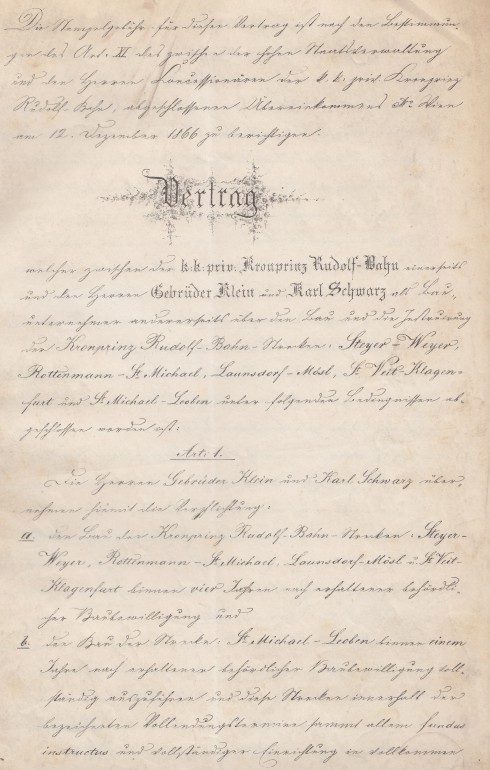 Die Stempelgebühr für diesen Vertrag ist nach den Bestimmun-
gen des Art. VI des zwischen der hohen Staatsverwaltung
und den Herren Concessionären der k. k. priv. Kronprinz
Rudolf-Bahn, abgeschlossenen Übereinkommens Wien
am 12. Dezember 1866 zu berichtigen.
Vertrag
welcher zwischen der k: k: priv: Kronprinz Rudolf-Bahn einerseits
und den Herren Gebrüder Klein und Karl Schwarz als Bau-
unternehmer andererseits über den Bau und die Instruirung
der Kronprinz Rudolf-Bahn-Strecken: Steyer-Weyer,
Rottenmann-St Michael, Launsdorf-Mösl, St Veit-Klagen-
furt und St Michael-Leoben unter folgenden Bedingnissen ab-
geschlossen worden ist:
Art: 1.
Die Herren Gebrüder Klein und Karl Schwarz über-
nehmen hiemit die Verpflichtung:
a. den Bau der Kronprinz Rudolf-Bahn-Strecken: Steyer-
Weyer, Rottenmann-St Michael, Launsdorf-Mösl u. St Veit-
Klagenfurt binnen vier Jahren nach erhaltener behördli-
cher Baubewilligung und
b. den Bau der Strecke: St Michael-Leoben binnen einem
Jahre nach erhaltener behördlicher Baubewilligung voll-
ständig auszuführen und diese Strecken innerhalb der
bezeichneten Vollendungstermine sammt allem fundus
instructus und vollständiger Einrichtung in vollkommen